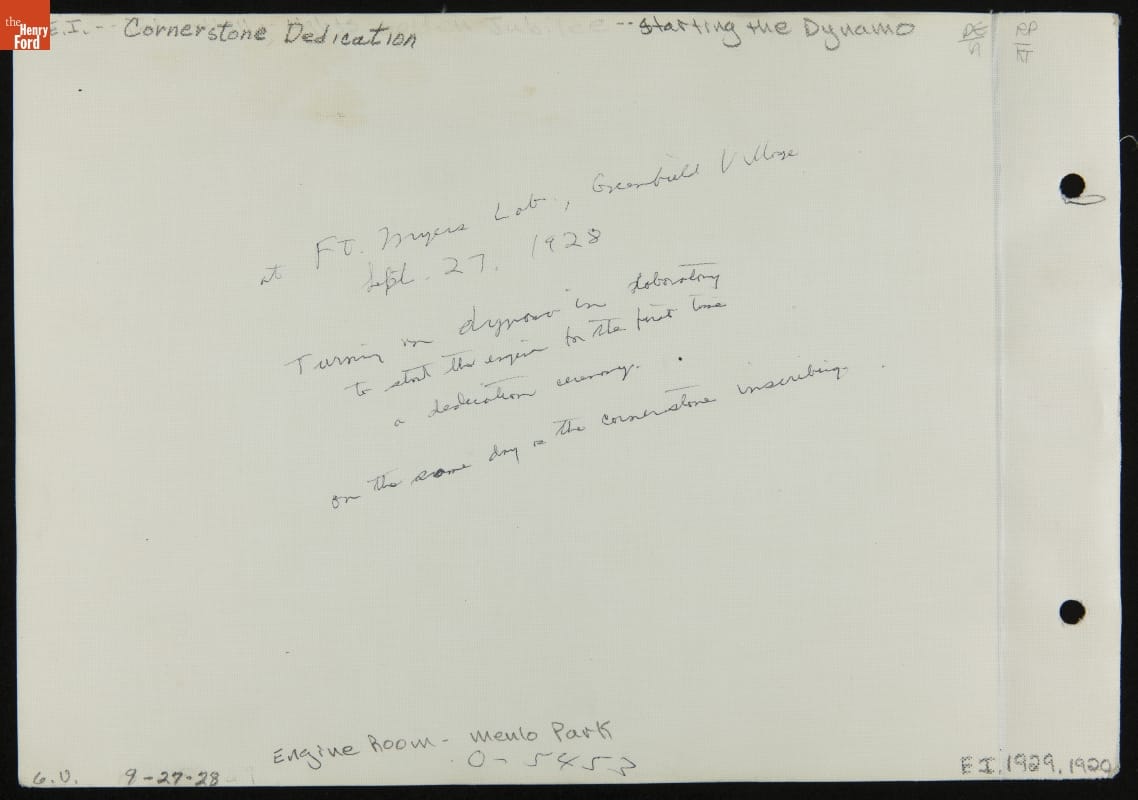 the Henry Ford
E.I. -- Cornerstone Dedication -- Starting the Dynamo
at Ft. Myers Lab., Greenfield Village
Sept. 27, 1928
Turning on dynamo in laboratory
to start the engine for the first time
a dedication ceremony.
on the same day as the cornerstone inscribing.
Engine Room - Menlo Park
O-5453
G.V. 9-27-28
E.I. 1929.1920